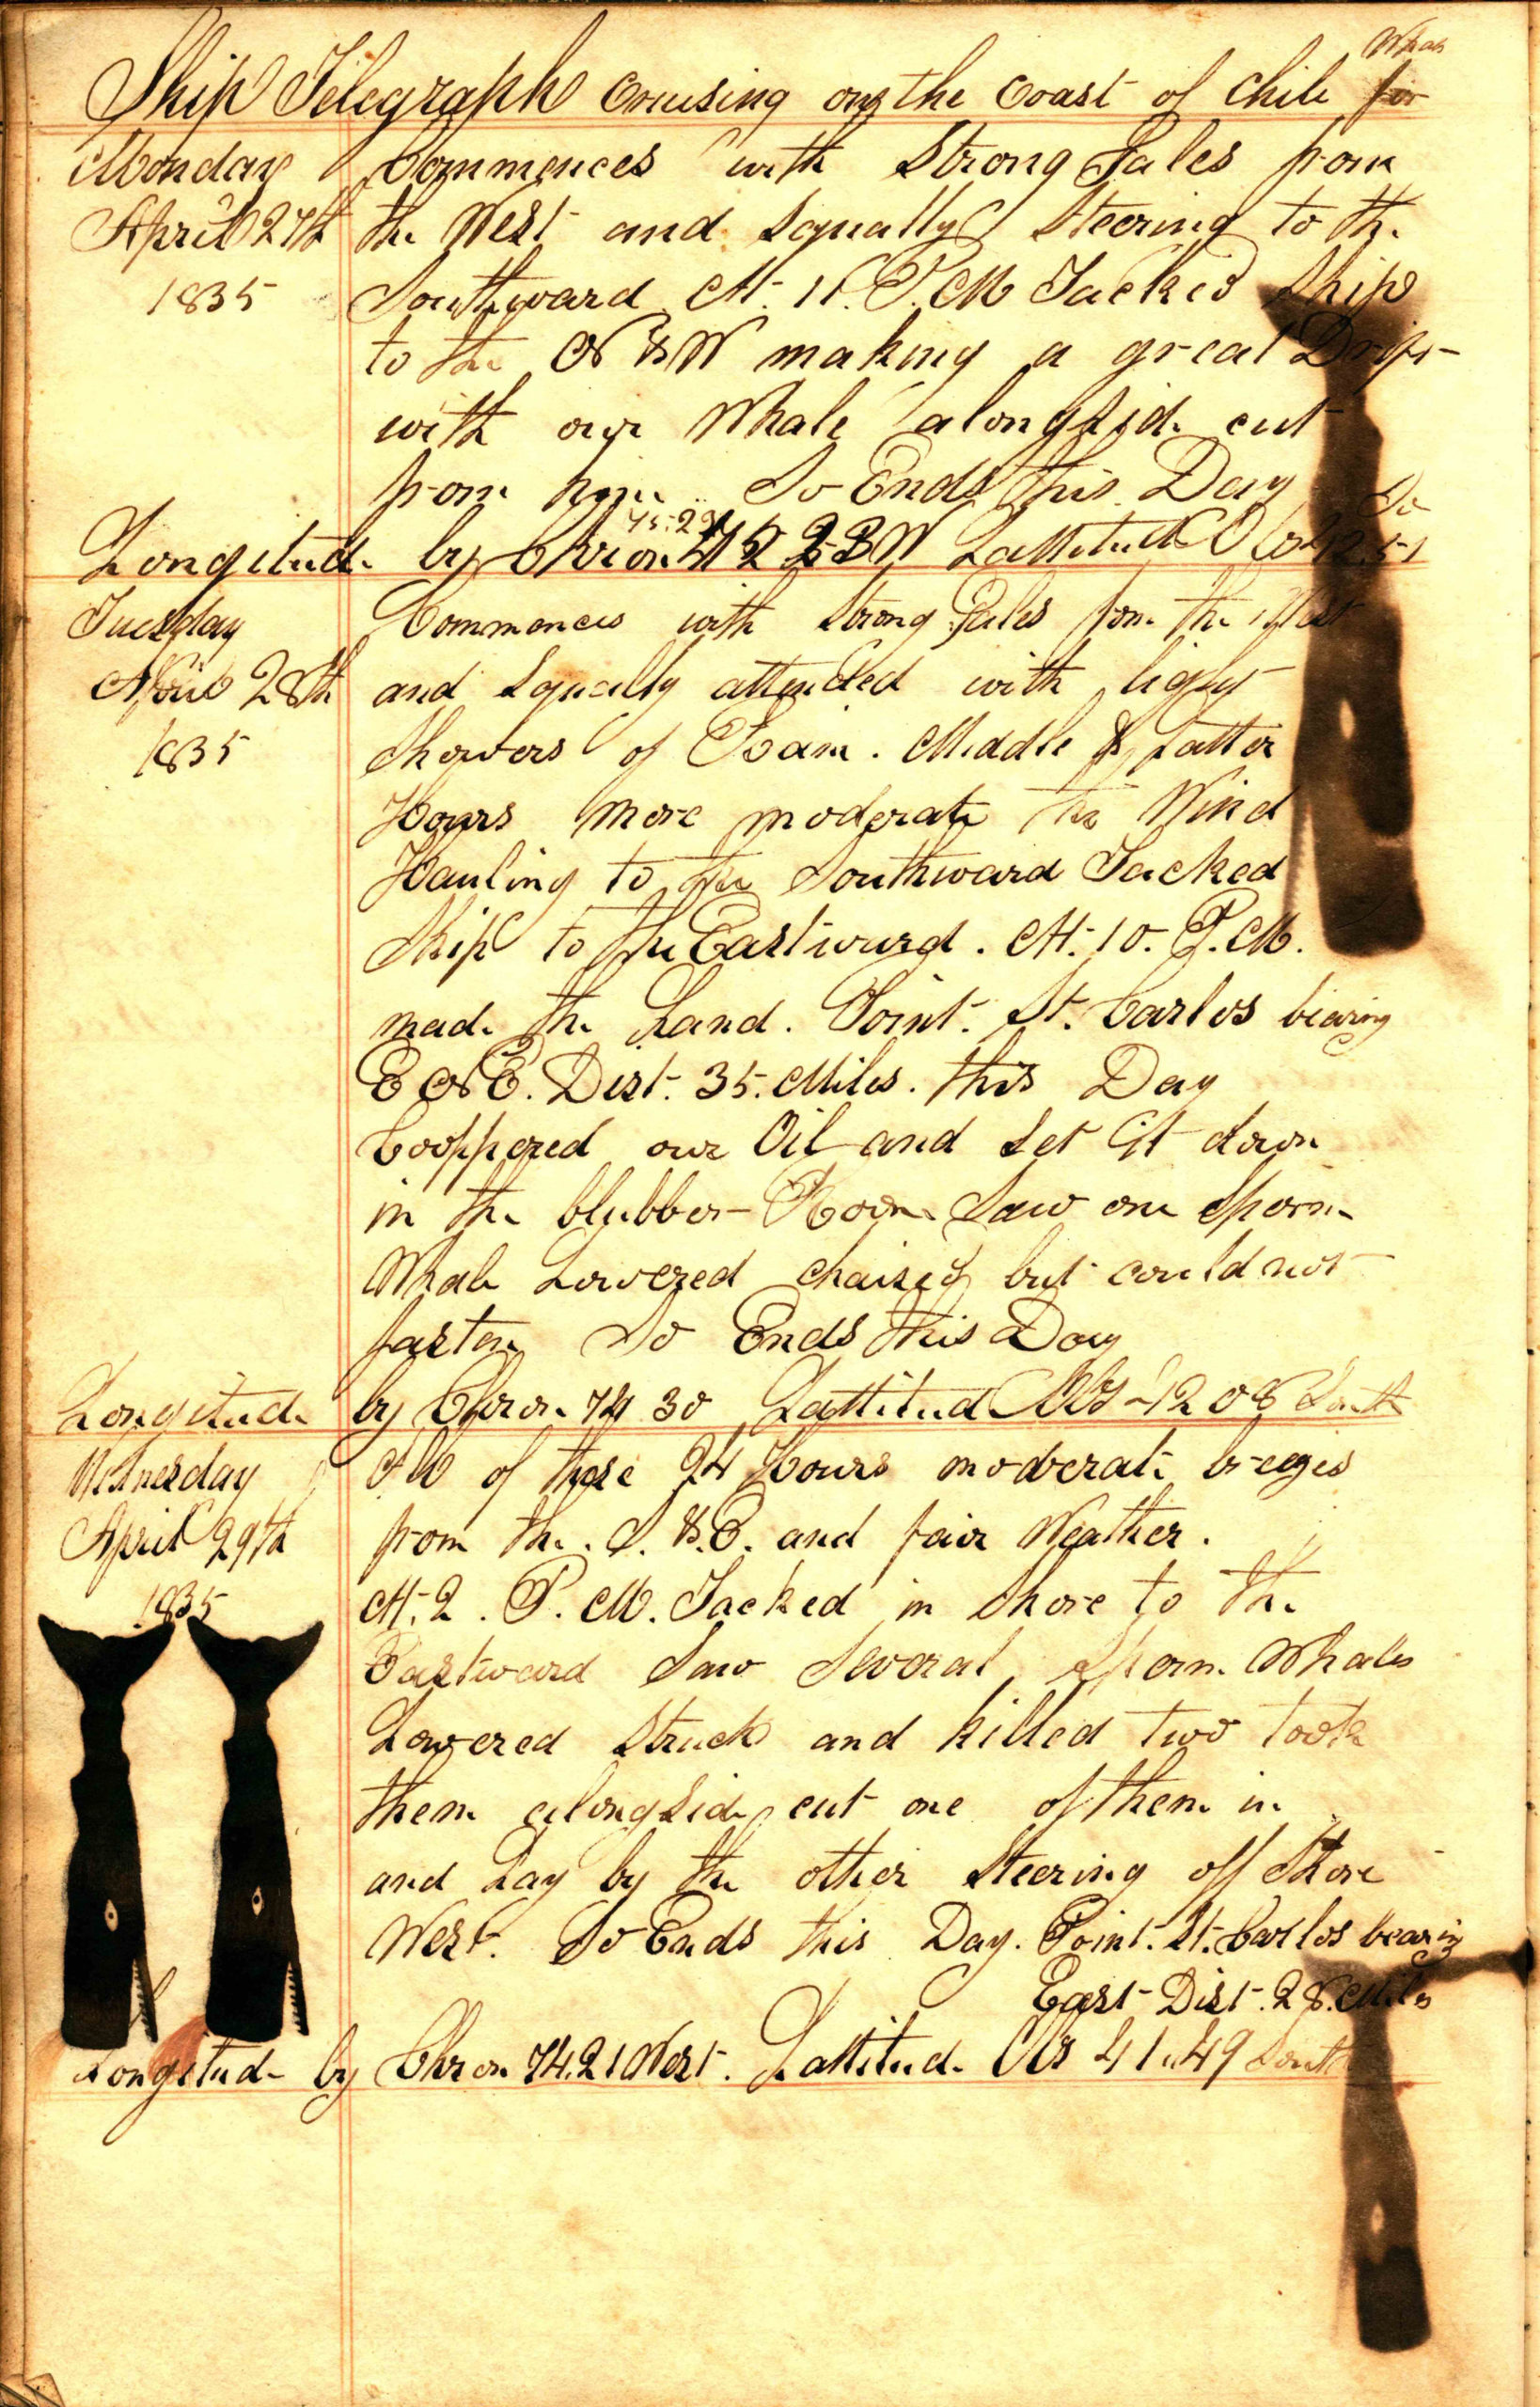 Whale
Ship Telegraph Cruising on the Coast of Chili for
Monday Commences with Strong Gales from
April 27th the West and Squally Steering to the
1835 Southward At. 11. P.M Tacked Ship
to the N & W making a great Drift
with our Whale alongside cut
from him So Ends this Day
75.29 So
Longitude by Chron W Lattitude Obs 42.51
Tuesday Commences with Strong Gales from the West
April 28th and Squally attended with light
1835 Showers of Rain. Middle & Latter
Hours more moderate the Wind
Hauling to the Southward Tacked
Ship to the Eastward. At. 10. P.M.
made the Land. Point. St. Carlos bearing
E N E. Dist. 35. Miles. this Day
Cooppered our Oil and Set it down
in the blubber Room Saw one Sperm
Whale Lowered chaised but could not
fasten So Ends this Day
Longitude by Chron 74 30 Lattitud Obs 42 08 South
Wednesday All of these 24 Hours moderate brezes
April 29th from the. S. &. E. and fair Weather.
1835 At. 2. P. M. Tacked in Shore to the
Eastward Saw Several Sperm Whales
Lowered Struck and killed two took
them alongside cut one of them in
and Lay by the other Steering off Shore
West. So Ends this Day. Point. St. Carlos bearing
East Dist. 28. Miles
Longitude by Chron 74.21 West. Lattitude Obs 41.49 South